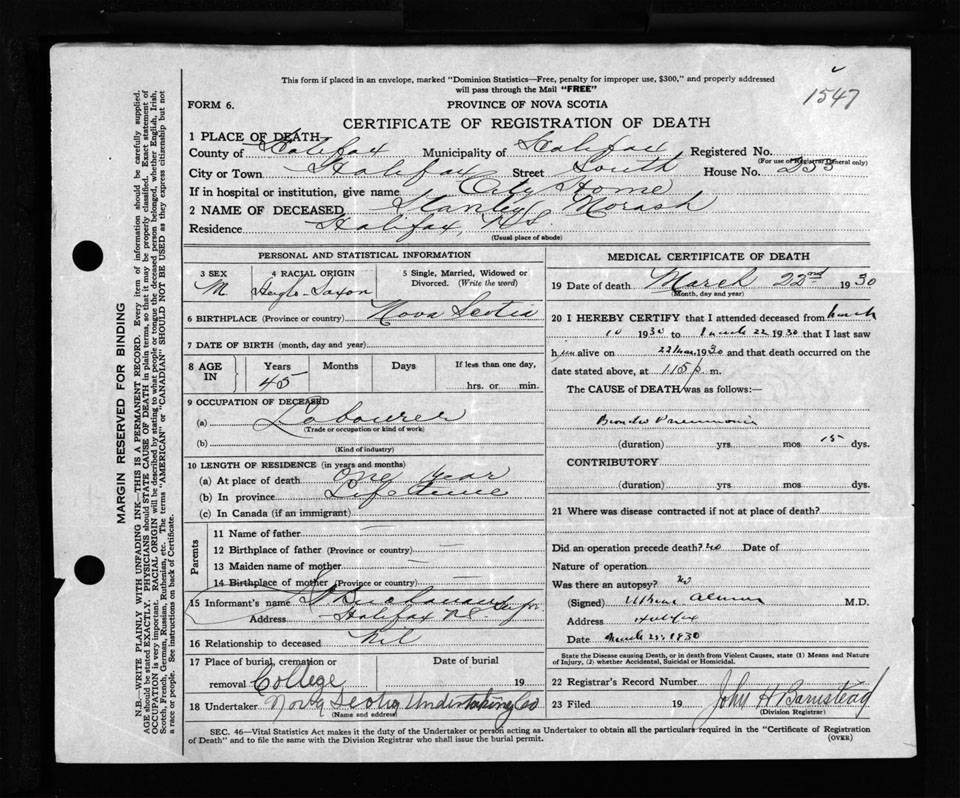 This form if placed in an envelope, marked "Dominion Statistics—Free, penalty for improper use, $300," and properly addressed
will pass through the Mail "FREE"
1547
FORM 6.
PROVINCE OF NOVA SCOTIA
CERTIFICATE OF REGISTRATION OF DEATH
1 PLACE OF DEATH
County of Halifax Municipality of Halifax Registered No.
(For use of Registrar General only)
City or Town Halifax Street South House No. 235
If in hospital or institution, give name City Home
2 NAME OF DECEASED Stanley Morash
Residence Halifax, NS
(Usual place of abode)
PERSONAL AND STATISTICAL INFORMATION
3 SEX 4 RACIAL ORIGIN 5 Single, Married, Widowed or
Divorced. (Write the word)
M Anglo-Saxon
6 BIRTHPLACE (Province or country) Nova Scotia
7 DATE OF BIRTH (month, day and year)
8 AGE IN Years Months Days If less than one day,
45 hrs. or min.
9 OCCUPATION OF DECEASED
(a) Labourer
(Trade or occupation or kind of work)
(b)
(Kind of industry)
10 LENGTH OF RESIDENCE (in years and months)
(a) At place of death one year
(b) In province Life time
(c) In Canada (if an immigrant)
Parents
11 Name of father —
12 Birthplace of father (Province or country) —
13 Maiden name of mother —
14 Birthplace of mother (Province or country) —
15 Informant's name Buchanan
Address Halifax NS.
16 Relationship to deceased Nil
17 Place of burial, cremation or Date of burial
removal College 19
18 Undertaker Nova Scotia Undertaking Co
(Name and address)
MEDICAL CERTIFICATE OF DEATH
19 Date of death March 22nd 1930
(Month, day and year)
20 I HEREBY CERTIFY that I attended deceased from March
10 1930 to March 22 1930 that I last saw
him alive on 22 Mar, 1930 and that death occurred on the
date stated above, at 1.15 p m.
The CAUSE of DEATH was as follows:—
Broncho Pneumonia
(duration) yrs mos 15 dys.
CONTRIBUTORY
(duration) yrs mos dys.
21 Where was disease contracted if not at place of death?
Did an operation precede death? no Date of
Nature of operation
Was there an autopsy? no
(Signed) M.D.
Address Halifax
Date March 1930
State the Disease causing Death, or in death from Violent Causes, state (1) Means and Nature
of Injury, (2) whether Accidental, Suicidal or Homicidal.
22 Registrar's Record Number
23 Filed 19 John H Barnstead
(Division Registrar)
SEC. 46—Vital Statistics Act makes it the duty of the Undertaker or person acting as Undertaker to obtain all the particulars required in the "Certificate of Registration
of Death" and to file the same with the Division Registrar who shall issue the burial permit.
(OVER)
MARGIN RESERVED FOR BINDING
N.B.—WRITE PLAINLY WITH UNFADING INK—THIS IS A PERMANENT RECORD. Every item of information should be carefully supplied.
AGE should be stated EXACTLY. PHYSICIANS should STATE CAUSE OF DEATH in plain terms, so that it may be properly classified. Exact statement of
OCCUPATION is very important. RACIAL ORIGIN will be described by stating to what people or tongue the deceased person belonged, whether English, Irish,
Scotch, French, German, Russian, Ruthenian, etc. The terms "AMERICAN" or "CANADIAN" SHOULD NOT BE USED as they express citizenship but not
a race or people. See instructions on back of Certificate.